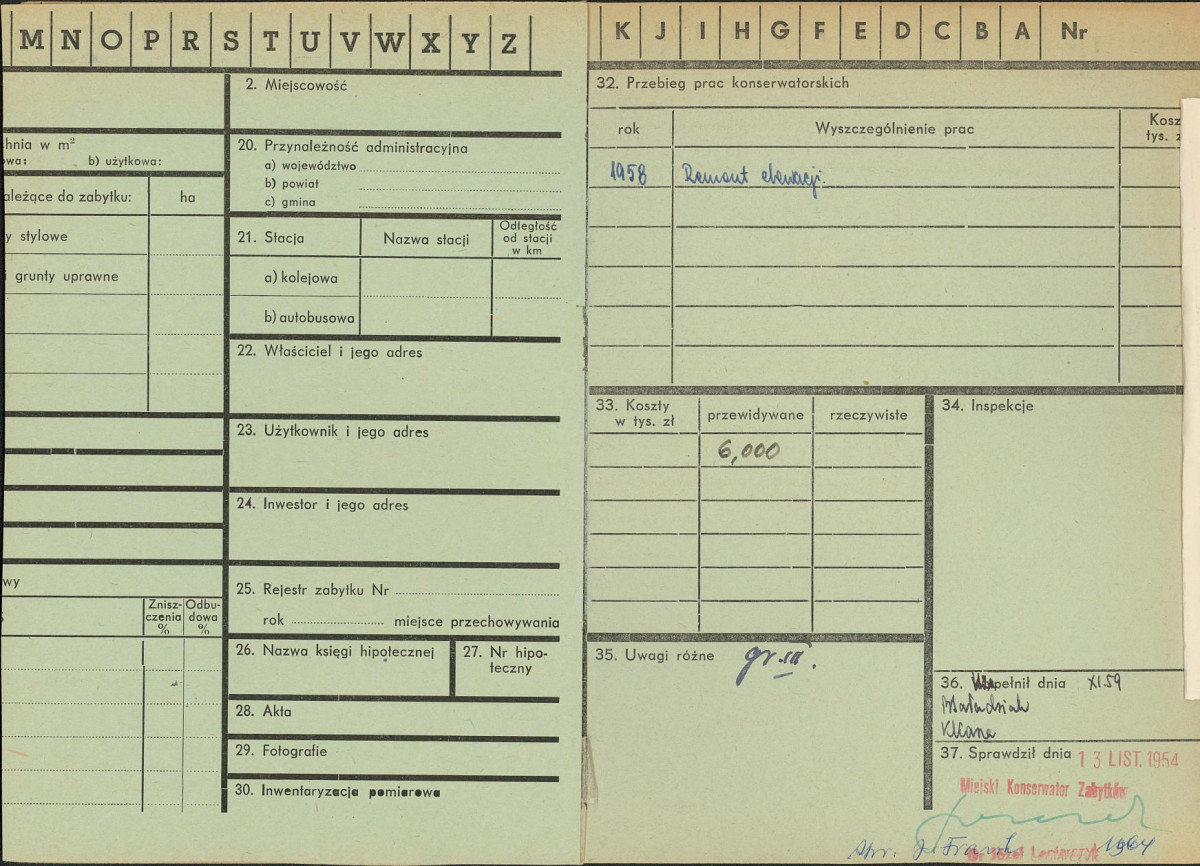 M N O P R S T U V W X Y Z
2. Miejscowość
chnia w m²
owa: b) użytkowa:
20. Przynależność administracyjna
a) województwo
b) powiat
c) gmina
ależące do zabytku: ha
y stylowe
i grunty uprawne
21. Stacja
Nazwa stacji
Odległość
od stacji
w km
a) kolejowa
b) autobusowa
22. Właściciel i jego adres
23. Użytkownik i jego adres
24. Inwestor i jego adres
25. Rejestr zabytku Nr
rok miejsce przechowywania
wy
Znisz-
czenia
%
Odbu-
dowa
%
26. Nazwa księgi hipotecznej
27. Nr hipo-
teczny
28. Akta
29. Fotografie
30. Inwentaryzacja pomiarowa
K J I H G F E D C B A Nr
32. Przebieg prac konserwatorskich
rok
Wyszczególnienie prac
Kosz
tys. z
1958 Remont elewacji.
33. Koszty
w tys. zł
przewidywane
rzeczywiste
6,000
34. Inspekcje
35. Uwagi różne gr. III.
36. Wypełnił dnia XI.59
37. Sprawdził dnia 13 LIST. 1954
Miejski Konserwator Zabytków
Dr Józef
1964